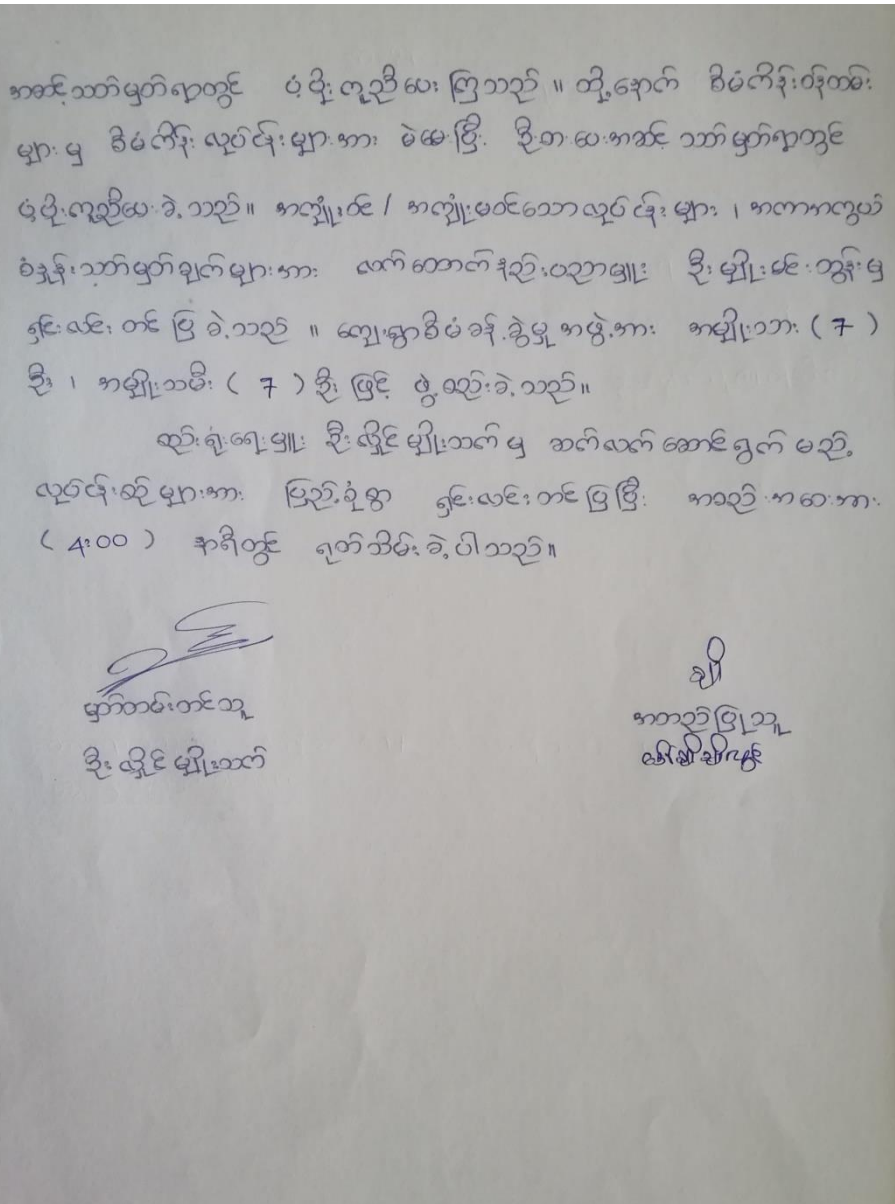 အဆင့်သတ်မှတ်ရာတွင် ပံ့ပိုးကူညီပေးကြသည်။ ထို့နောက် စီမံကိန်းဝန်ထမ်း
များမှ စီမံကိန်းလုပ်ငန်းများအား မဲပေးပြီး ဦးစားပေးအဆင့် သတ်မှတ်ရာတွင်
ပံ့ပိုးကူညီပေးခဲ့သည်။ အကျုံးဝင် / အကျုံးမဝင်သောလုပ်ငန်းများ ၊ အကာအကွယ်
စံနှုန်းသတ်မှတ်ချက်များအား လက်ထောက်နည်းပညာမှူး ဦးမျိုးမင်းထွန်းမှ
ရှင်းလင်းတင်ပြခဲ့သည်။ ကျေးရွာစီမံခန့်ခွဲမှုအဖွဲ့အား အမျိုးသား (7)
ဦး ၊ အမျိုးသမီး (7) ဦးဖြင့် ဖွဲ့စည်းခဲ့သည်။
စည်းရုံးရေးမှူး ဦးလှိုင်မျိုးသက်မှ ဆက်လက်ဆောင်ရွက်မည့်
လုပ်ငန်းစဉ်များအား ပြည့်စုံစွာ ရှင်းလင်းတင်ပြပြီး အစည်းအဝေးအား
(4:00) နာရီတွင် ရုတ်သိမ်းခဲ့ပါသည်။
ချို
မှတ်တမ်းတင်သူ
အတည်ပြုသူ
ဦးလှိုင်မျိုးသက်
ဒေါ်ချိုချိုလွင်